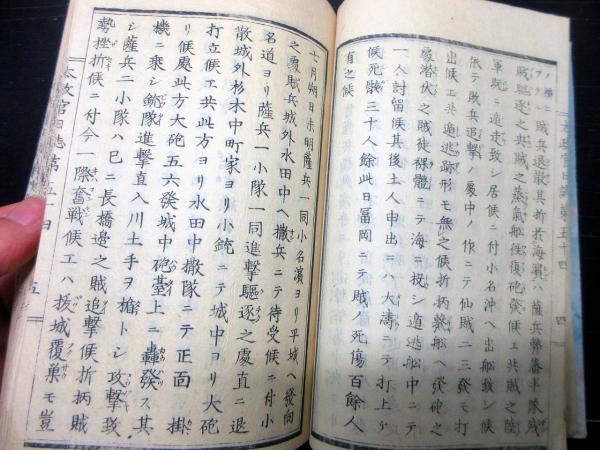 アリ一賊兵退散其折於海濱ハ薩兵勢備半隊残
賊驅逐之央賊之蒸氣舩ヨリ砲發候エ共賊之陸
軍既ニ遠走致シ居候ニ付小名沖ヘ出舩致シ候
依テ敗兵追撃ノ處中ノ作ニテ仙賊二三發モ打
出候エ共逃跡形モ無之候折柄熱舩ヘ發砲之
處潜伏之賊徒得體ニテ海ニ投シ遁逃舩中ニテ
一人討留候其後土人申出ニハ大濤ニテ打上ケ
候死骸三十人餘此日冨岡ニテ賊ノ死傷百餘人
有之候
太政官日誌第五十四
四
七月朔日未明薩兵一同小名濱ヨリ平城ヘ發向
之處賊兵城外水田中ヘ撒兵ニテ待受候ニ付小
名道ヨリ薩兵一小隊一同進撃驅逐之處直ニ退
散城外杉木中町家ヨリ小銃ニテ城中ヨリ大砲
打立候エ共此方ヨリ水田中撒隊ニテ正面ニ掛
リ候處此方大砲五六發城中砲臺上ニ轟發ス其
機ニ乗シ銃隊進撃直入川土手ヲ楯トシ攻撃致
シ薩兵二小隊ハ已ニ長橋邊之賊追撃候折柄賊
勢挫折候ニ付今一際奮戰候エハ拔城覆巢モ豈
太政官日誌第五十四
五